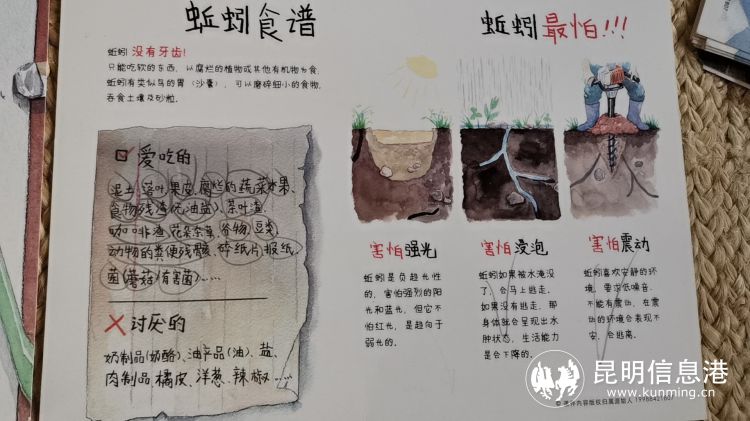 蚯蚓食谱
蚯蚓 没有牙齿!
只能吃软的东西, 以腐烂的植物或其他有机物为食,
蚯蚓有类似鸟的胃 (沙囊), 可以磨碎细小的食物,
吞食土壤及砂粒.
爱吃的
泥土、落叶、果皮、腐烂的蔬菜水果、
食物残渣(无油盐)、茶叶渣、
咖啡渣、花朵杂草、谷物、豆类、
动物的粪便残骸、碎纸片、报纸、
菌(蘑菇/有害菌)……
讨厌的
奶制品(奶酪)、油产品(油)、盐、
肉制品、橘皮、洋葱、辣椒……
蚯蚓最怕!!!
害怕强光
蚯蚓是负趋光性
的, 害怕强烈的阳
光和蓝光, 但它不
怕红光, 是趋向于
弱光的.
害怕浸泡
蚯蚓如果被水淹没
了, 会马上逃走.
如果没有逃走, 那
身体就会呈现出水
肿状态, 生活能力
是会下降的.
害怕震动
蚯蚓喜欢安静的环
境, 要求低噪音.
不能有震动, 在震
动的环境会表现不
安, 会逃离.
昆明信息港
www.kunming.cn